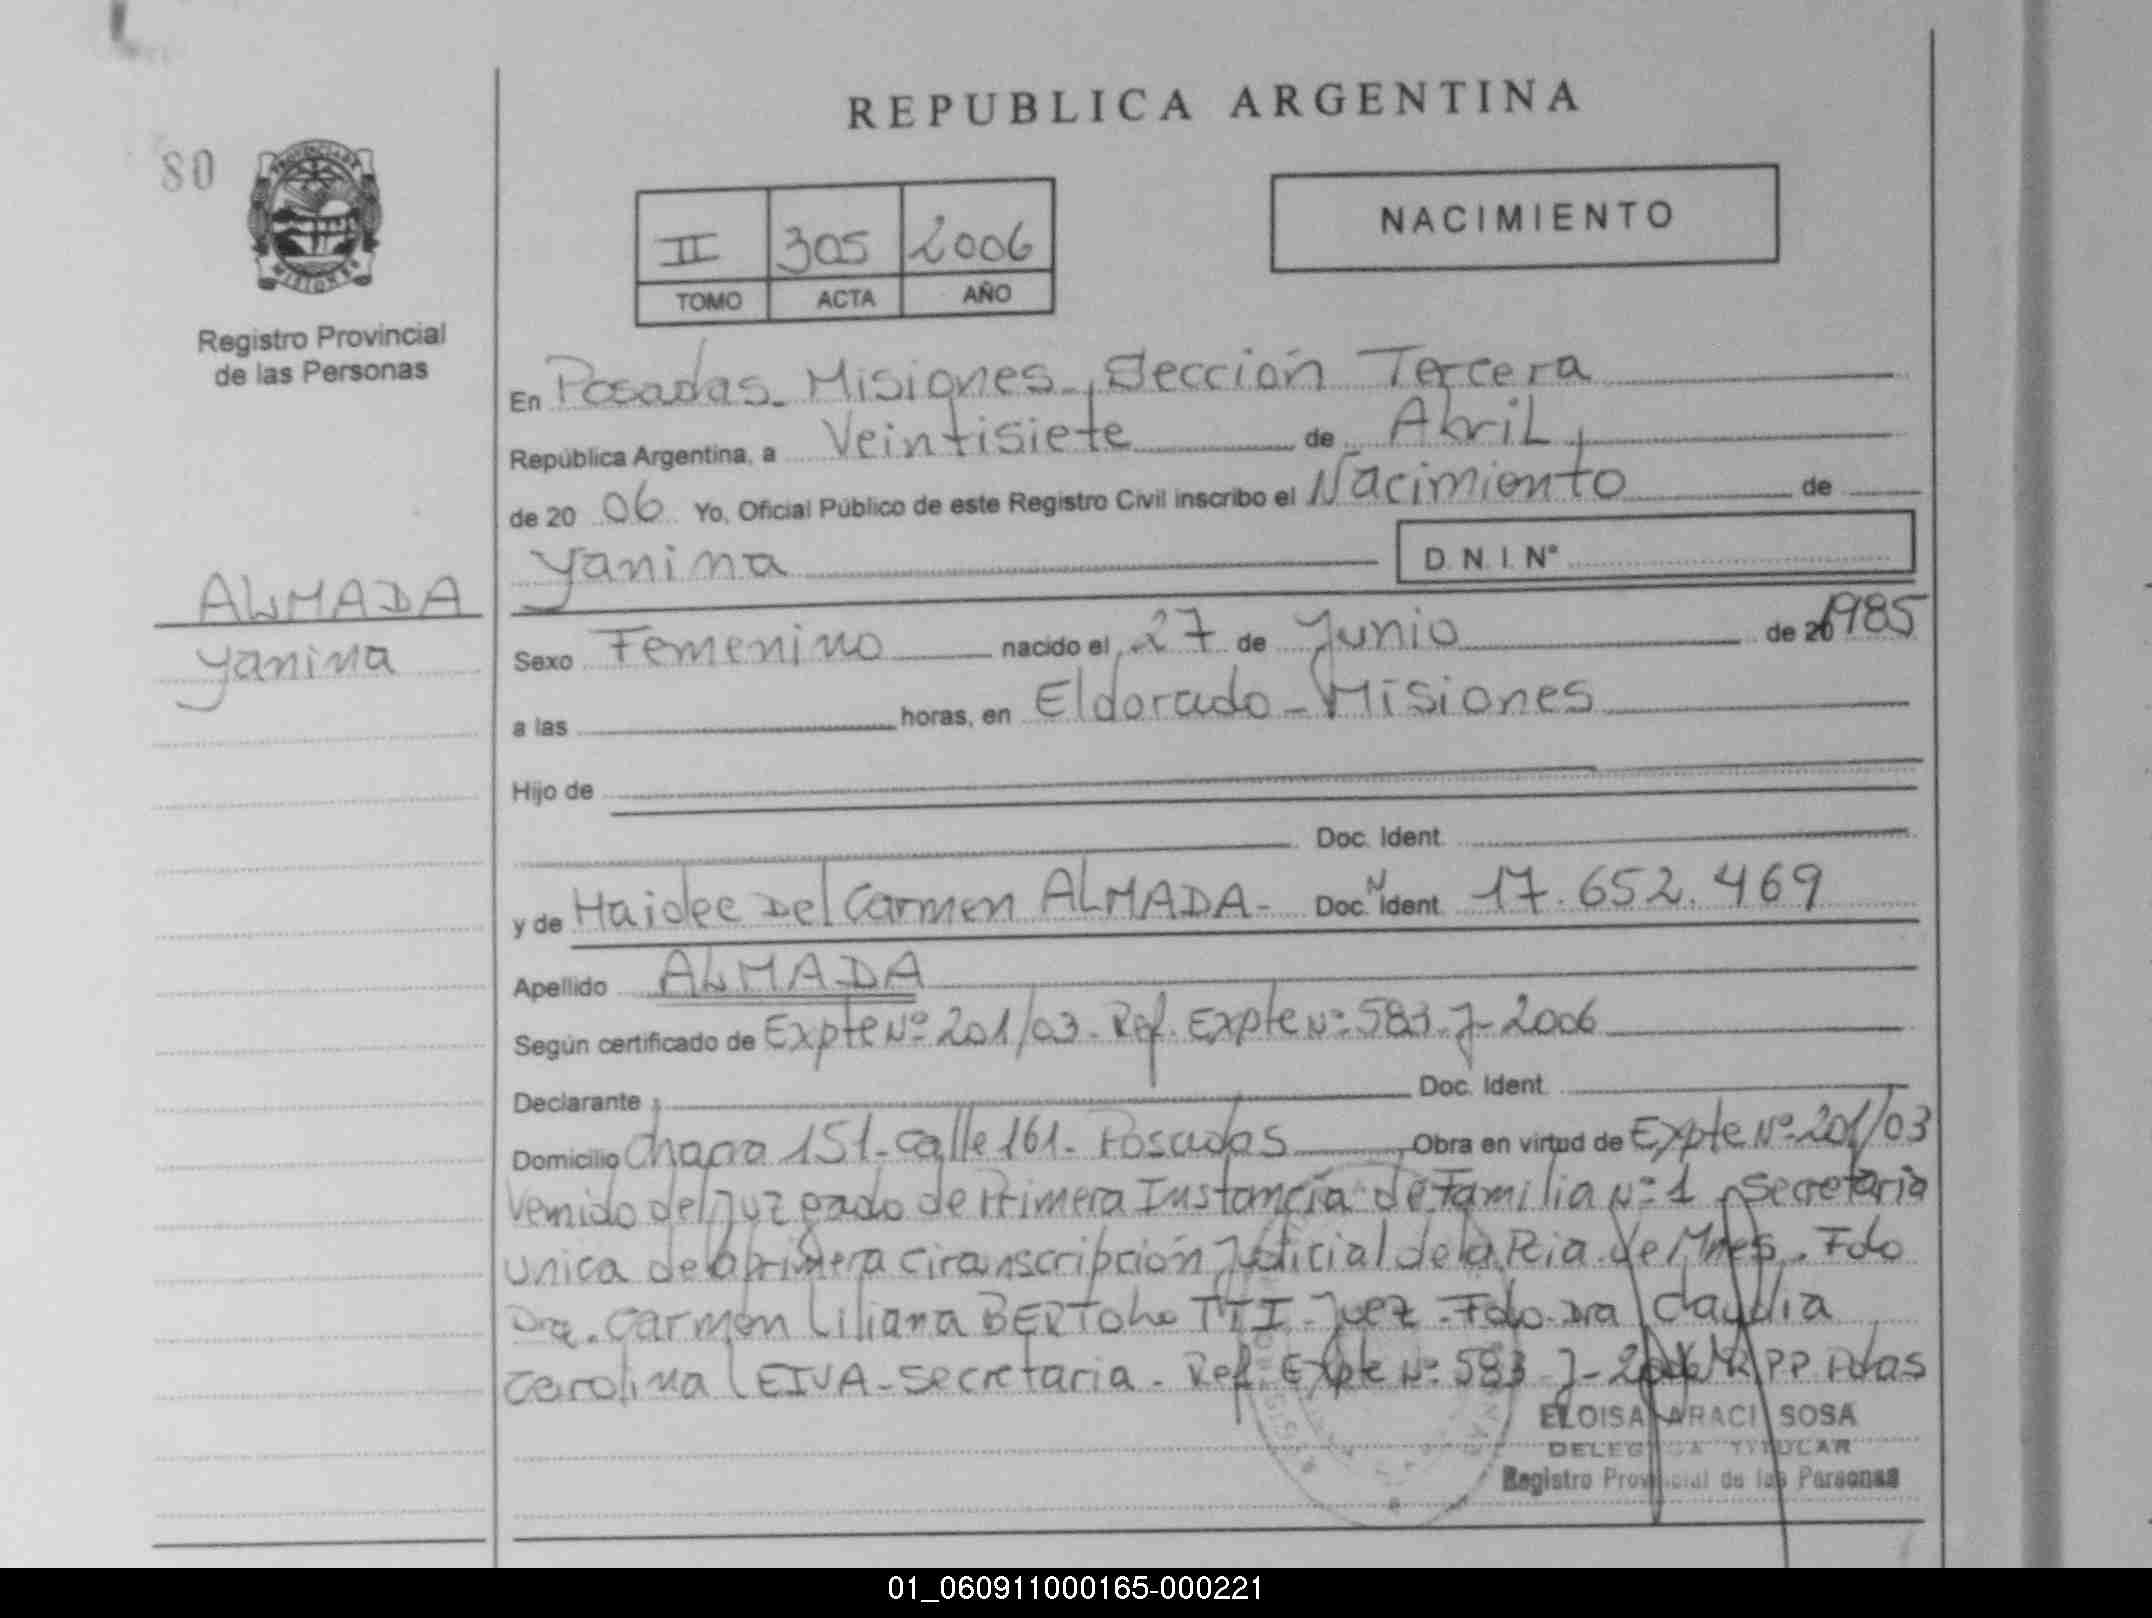 REPUBLICA ARGENTINA
80
PROVINCIA DE
MISIONES
Registro Provincial
de las Personas
II 305 2006
TOMO ACTA AÑO
NACIMIENTO
En Posadas - Misiones, Sección Tercera
República Argentina, a Veintisiete de Abril,
de 20 06 Yo, Oficial Público de este Registro Civil inscribo el Nacimiento de
Yanina D.N.I. Nº
ALMADA
Yanina
Sexo Femenino nacido el 27 de Junio de 20 1985
a las horas, en Eldorado - Misiones
Hijo de
Doc. Ident.
y de Haidee Del Carmen ALMADA - Doc. N Ident. 17.652.469
Apellido ALMADA
Según certificado de Expte Nº 201/03 - Ref. Expte Nº 583-J-2006
Declarante Doc. Ident.
Domicilio Chacra 151 - calle 161 - Posadas Obra en virtud de Expte Nº 201/03
Venido del Juzgado de Primera Instancia de Familia Nº 1, Secretaria
unica de la primera circunscripción Judicial de la Pcia. de Mnes. Fdo
Dra. Carmen Liliana BERTolo TTI - Juez - Fdo. Dra Claudia
Carolina LEIVA - secretaria - Ref. Expte Nº 583 J-2006 Pdas
ELOISA ARACI SOSA
DELEGADA TITULAR
Registro Provincial de las Personas
01_060911000165-000221